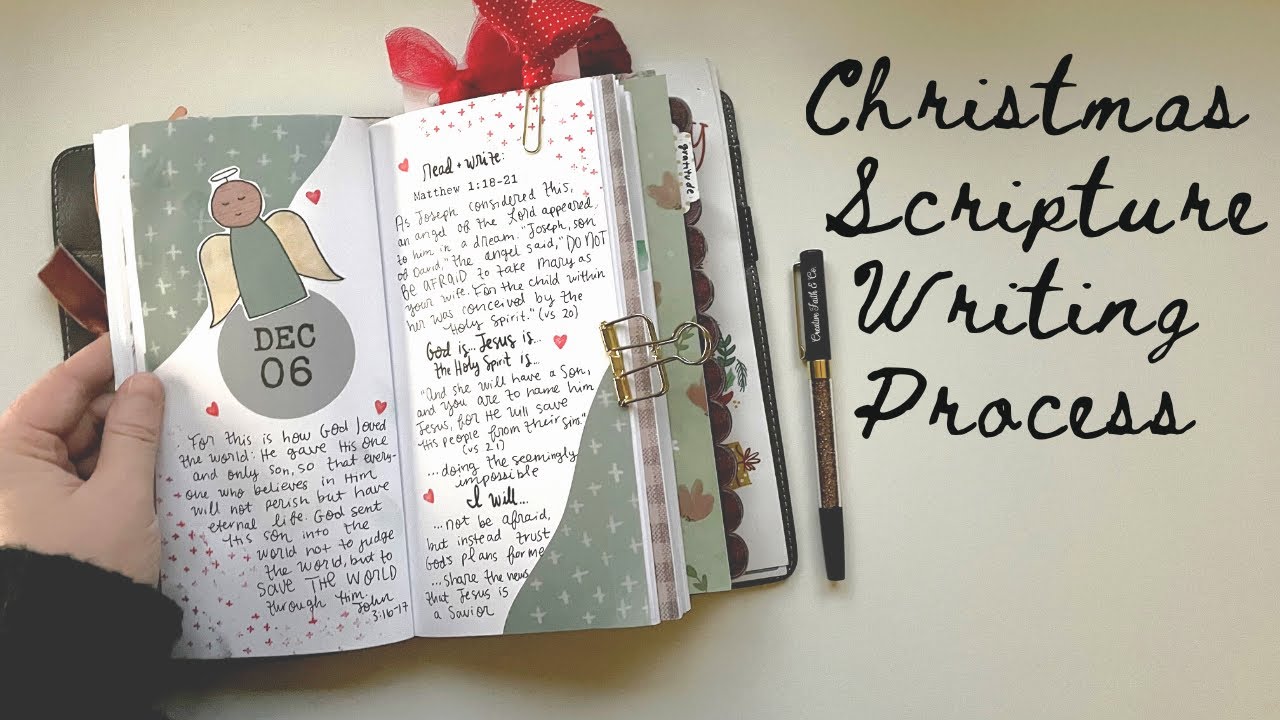 DEC
06
For this is how God loved
the world: He gave His one
and only son, so that every-
one who believes in Him
will not perish but have
eternal life. God sent
His son into the
world not to judge
the world, but to
SAVE THE WORLD
through Him
John
3:16-17
Read + Write:
Matthew 1:18-21
As Joseph considered this,
an angel of the Lord appeared
to him in a dream. "Joseph, son
of David," the angel said, "DO NOT
BE AFRAID to take Mary as
your wife. For the child within
her was conceived by the
Holy Spirit." (vs 20)
God is... Jesus is...
the Holy Spirit is...
"And she will have a Son,
and you are to name him
Jesus, for He will save
His people from their sins."
(vs 21)
...doing the seemingly
impossible
I will...
...not be afraid,
but instead trust
God's plans for me
...share the news
that Jesus is
a Savior
gratitude
Creative Faith & Co.
Christmas
Scripture
Writing
Process